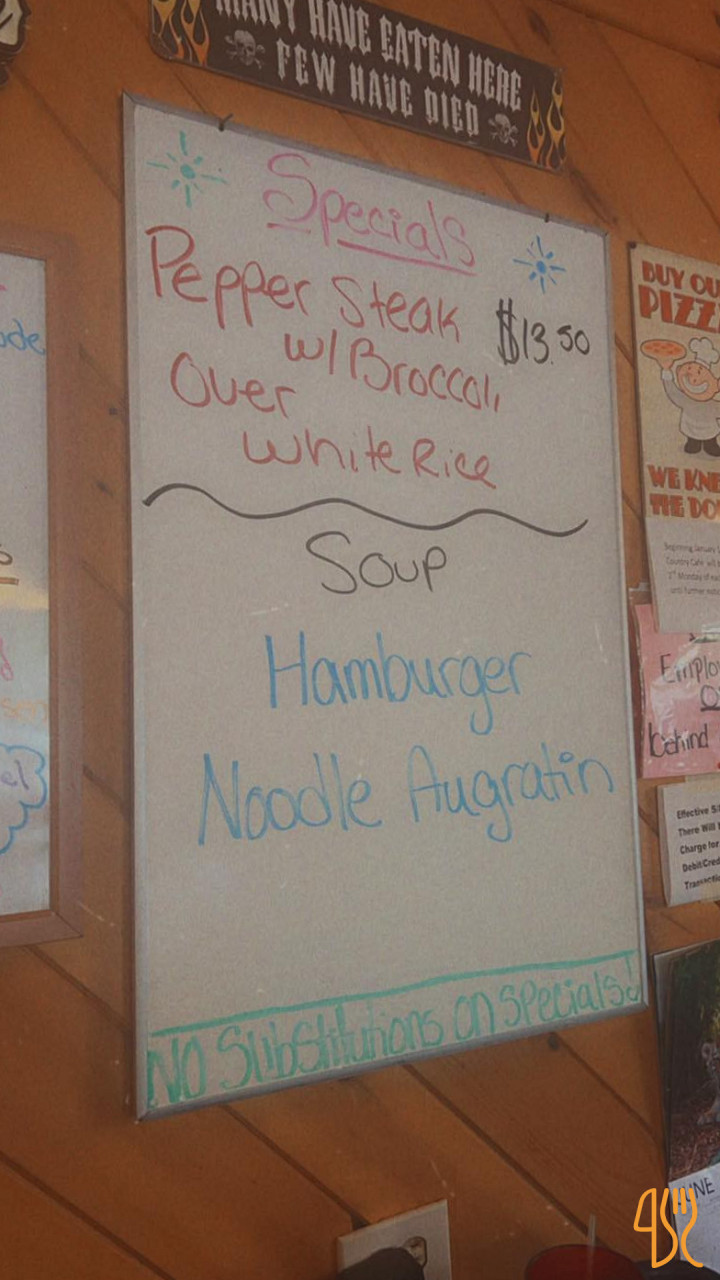 MANY HAVE EATEN HERE
FEW HAVE DIED
Specials
Pepper Steak $13.50
w/Broccoli
Over
White Rice
Soup
Hamburger
Noodle Augratin
NO Substitutions on Specials!
BUY OU
PIZZ
WE KNE
THE DO
Beginning January
Country Cafe will b
2nd Monday of ea
until further noti
Emplo
behind
Effective
There Will
Charge for
Debit/Cred
Transacti
UNE
ode
el